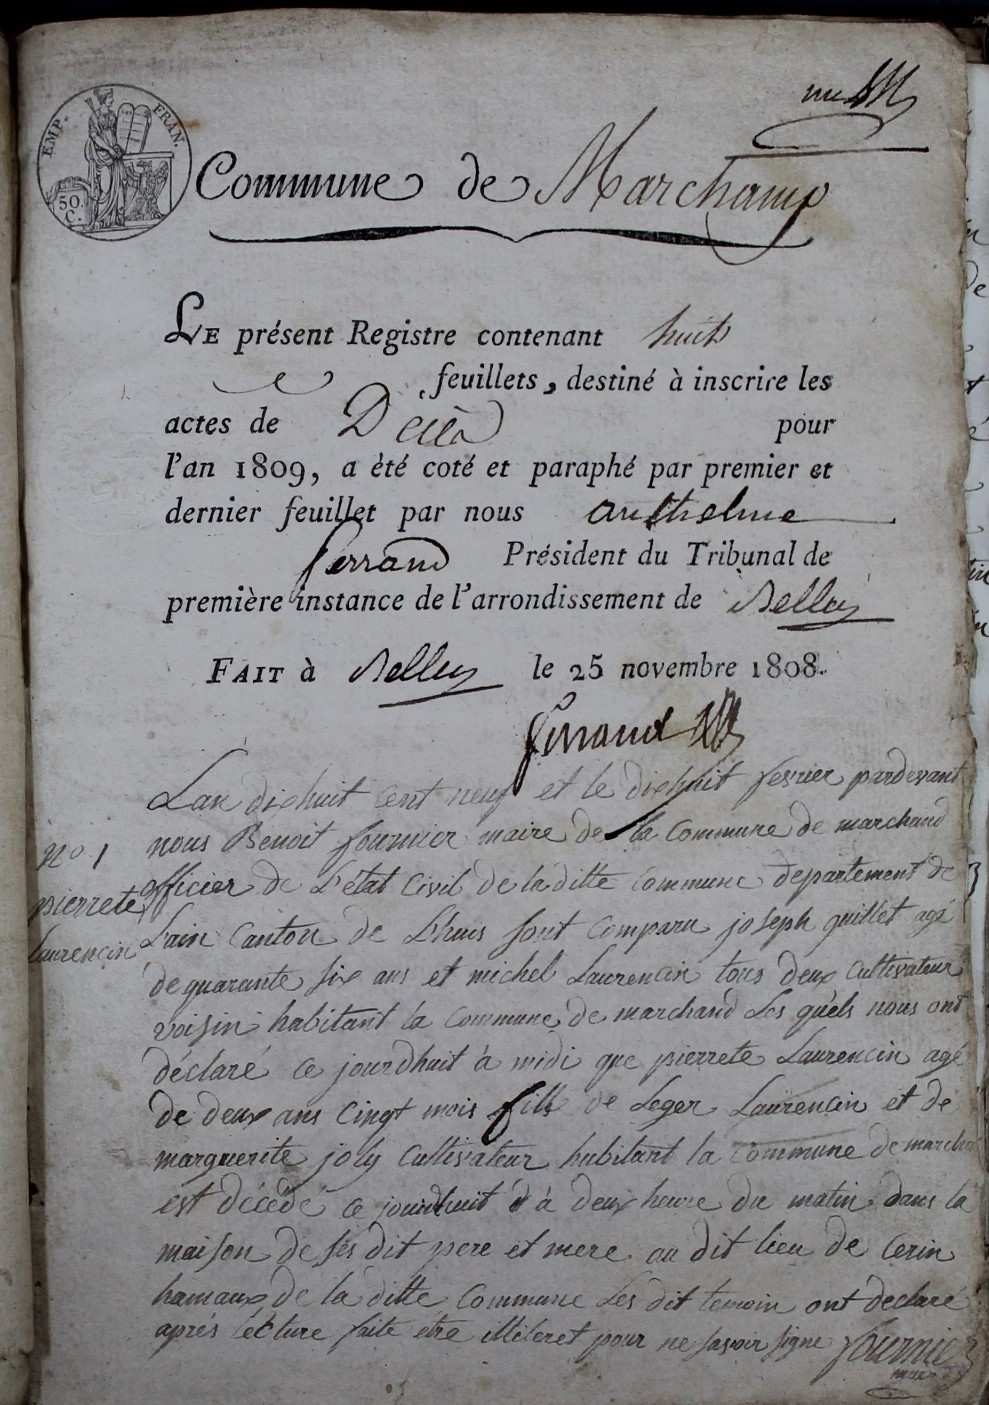 EMP. FRAN.
50. C.
Commune de Marchamp
LE présent Registre contenant huit
feuillets, destiné à inscrire les
actes de Décès pour
l'an 1809, a été coté et paraphé par premier et
dernier feuillet par nous anthelme
ferrand Président du Tribunal de
première instance de l'arrondissement de Belley
FAIT à Belley le 25 novembre 1808.
ferrand
Lan dixhuit cent neuf et le dixhuit fevrier pardevant
nous Benoit fournier maire de la Commune de marchand
nº 1
pierrete
Laurencin
officier de L'état Civil de la ditte commune departement de
L'ain Canton de L'huis sont Comparu joseph guillet agé
de quarante six ans et michel Laurencin tous deux Cultivateur
voisin habitant la Commune de marchand Les quels nous ont
déclaré ce jourdhuit à midi que pierrete Laurencin agé
de deux ans cinqt mois fille de Leger Laurencin et de
marguerite joly Cultivateur habitant la Commune de marchan
est décédé ce jourdhuit à deux heure du matin dans la
maison de ses dit pere et mere au dit lieu de Cerin
hamaux de la ditte Commune Les dit temoin ont declaré
aprés lecture faite etre illiteret pour ne savoir signe fournier